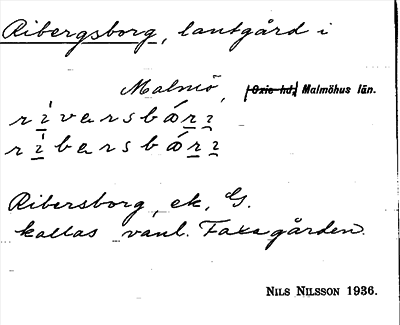 Ribergsborg, lantgård i
Malmö, [Oxie hd,] Malmöhus län.
Ribersborg, ek. G.
kallas vanl. Faxagården.
NILS NILSSON 1936.